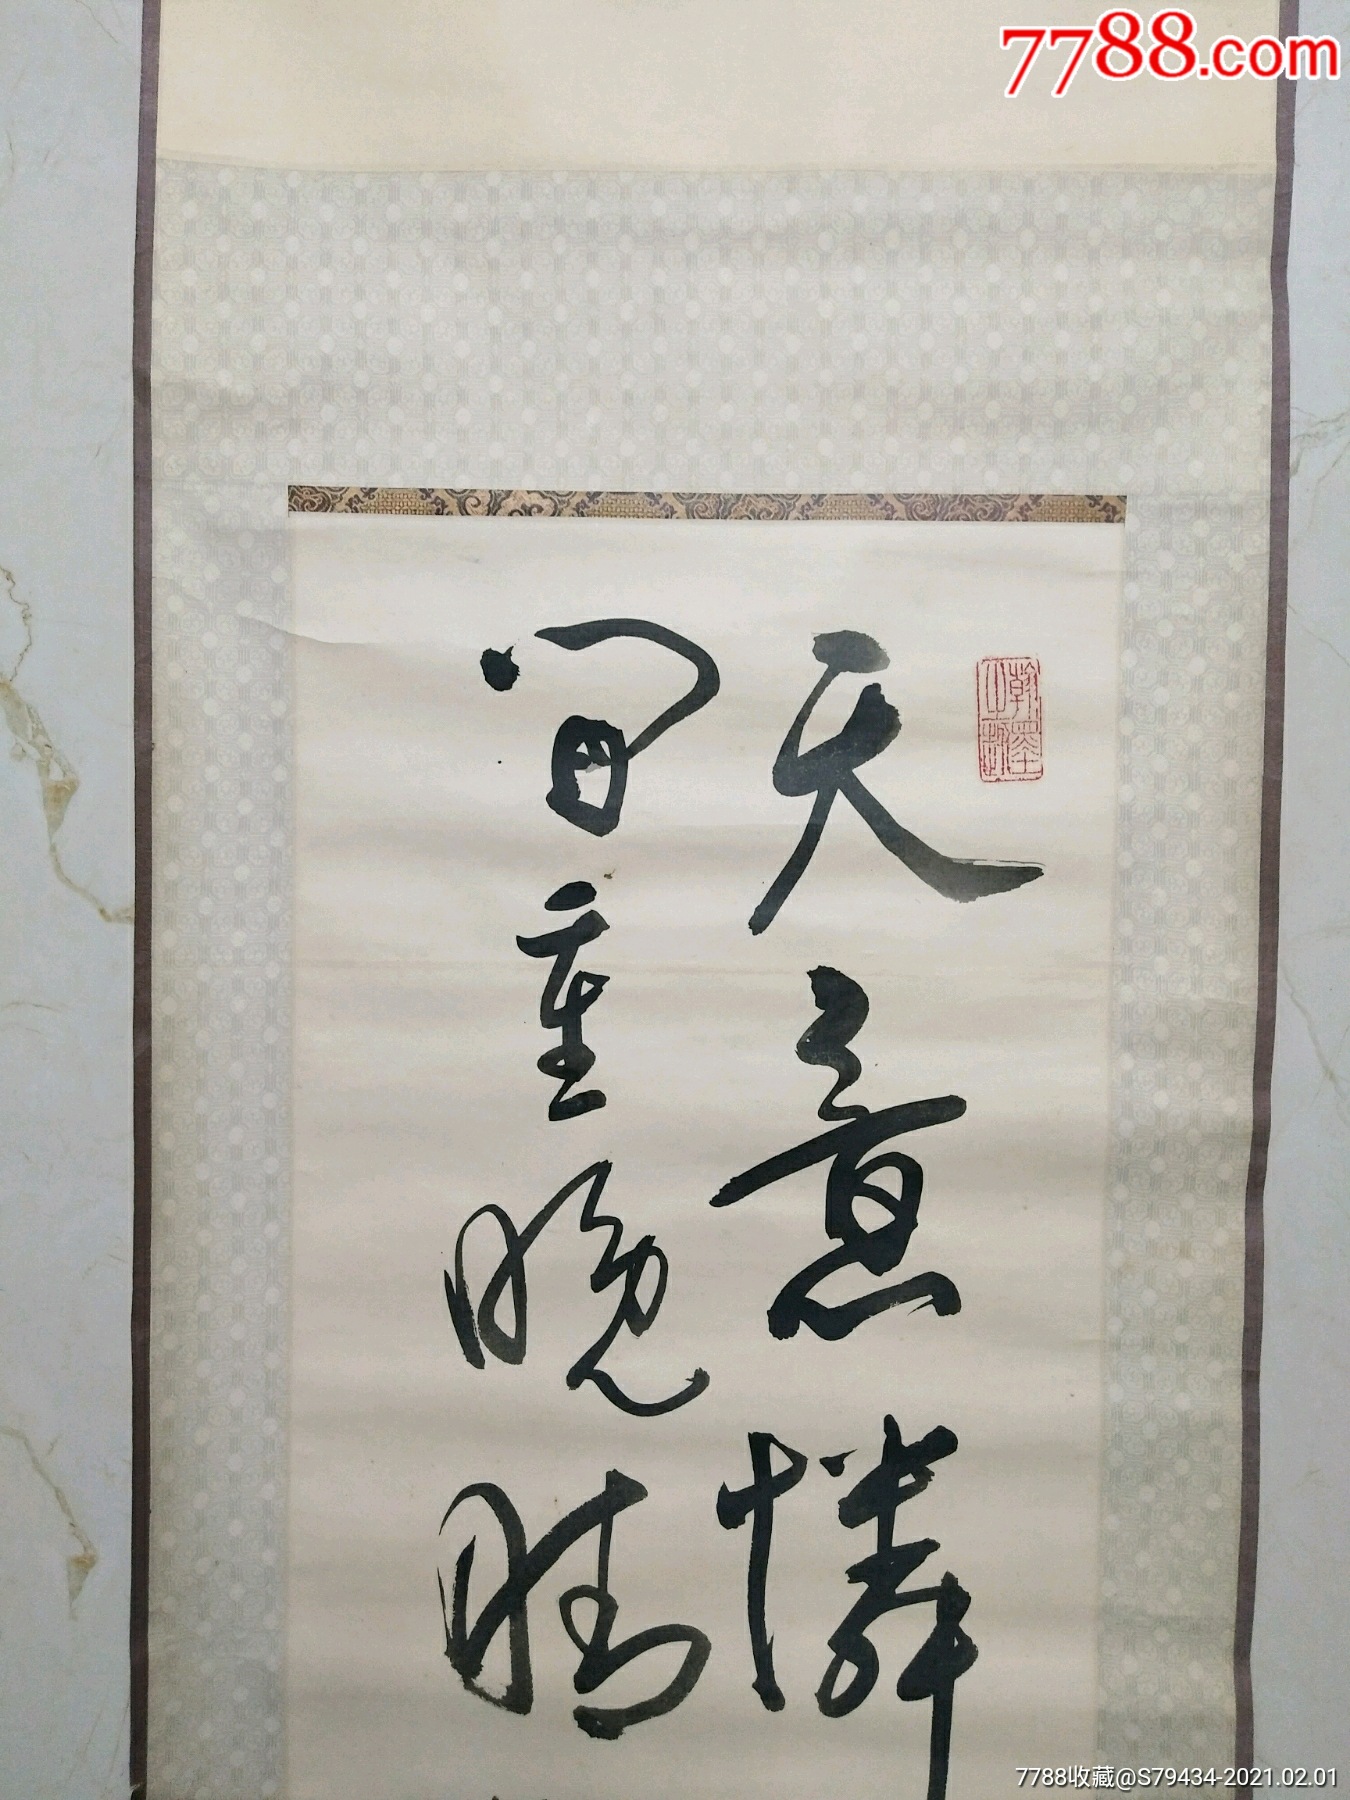 7788.com
天意憐
間重晚晴
翰墨
7788收藏@S79434-2021.02.01